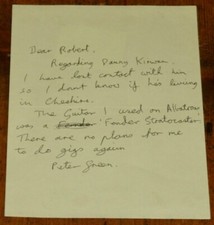 Dear Robert,
Regarding Danny Kirwan.
I have lost contact with him
so I don't know if he's living
in Cheshire.
The Guitar I used on Albatross
was a Fender 'Fender Stratocaster'
There are no plans for me
to do gigs again
Peter Green.